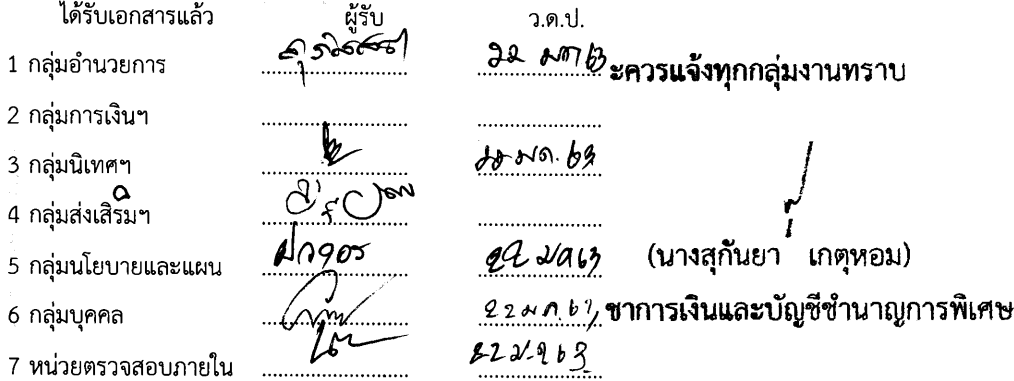 ได้รับเอกสารแล้ว ผู้รับ ว.ด.ป.
1 กลุ่มอำนวยการ 22 มค 63 ะควรแจ้งทุกกลุ่มงานทราบ
2 กลุ่มการเงินฯ
3 กลุ่มนิเทศฯ 22 มค. 63
4 กลุ่มส่งเสริมฯ
5 กลุ่มนโยบายและแผน 22 มค 63 (นางสุกันยา เกตุหอม)
6 กลุ่มบุคคล 22 ม.ค. 63 ชาการเงินและบัญชีชำนาญการพิเศษ
7 หน่วยตรวจสอบภายใน 22 ม.ค 63